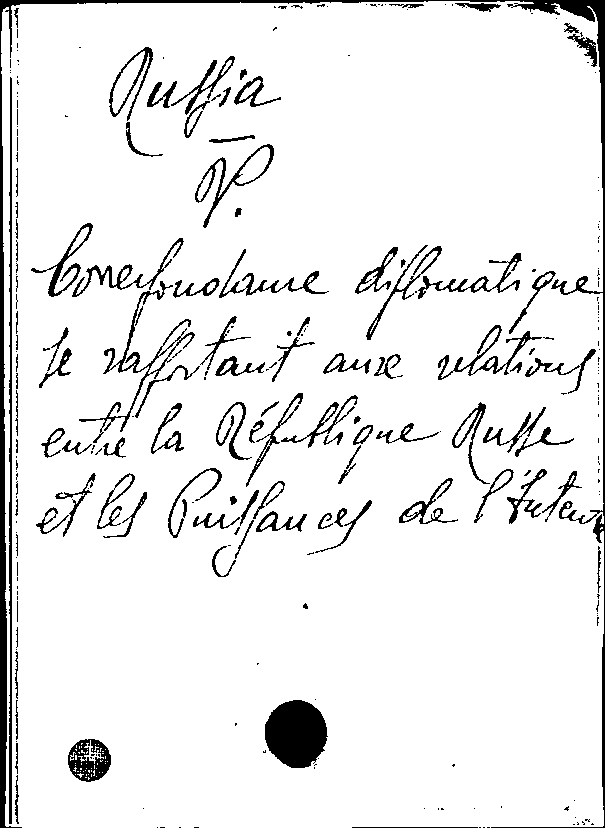 Russia
—
V.
Correspondance diplomatique
se rapportant aux relations
entre la République Russe
et les Puissances de l'Entente